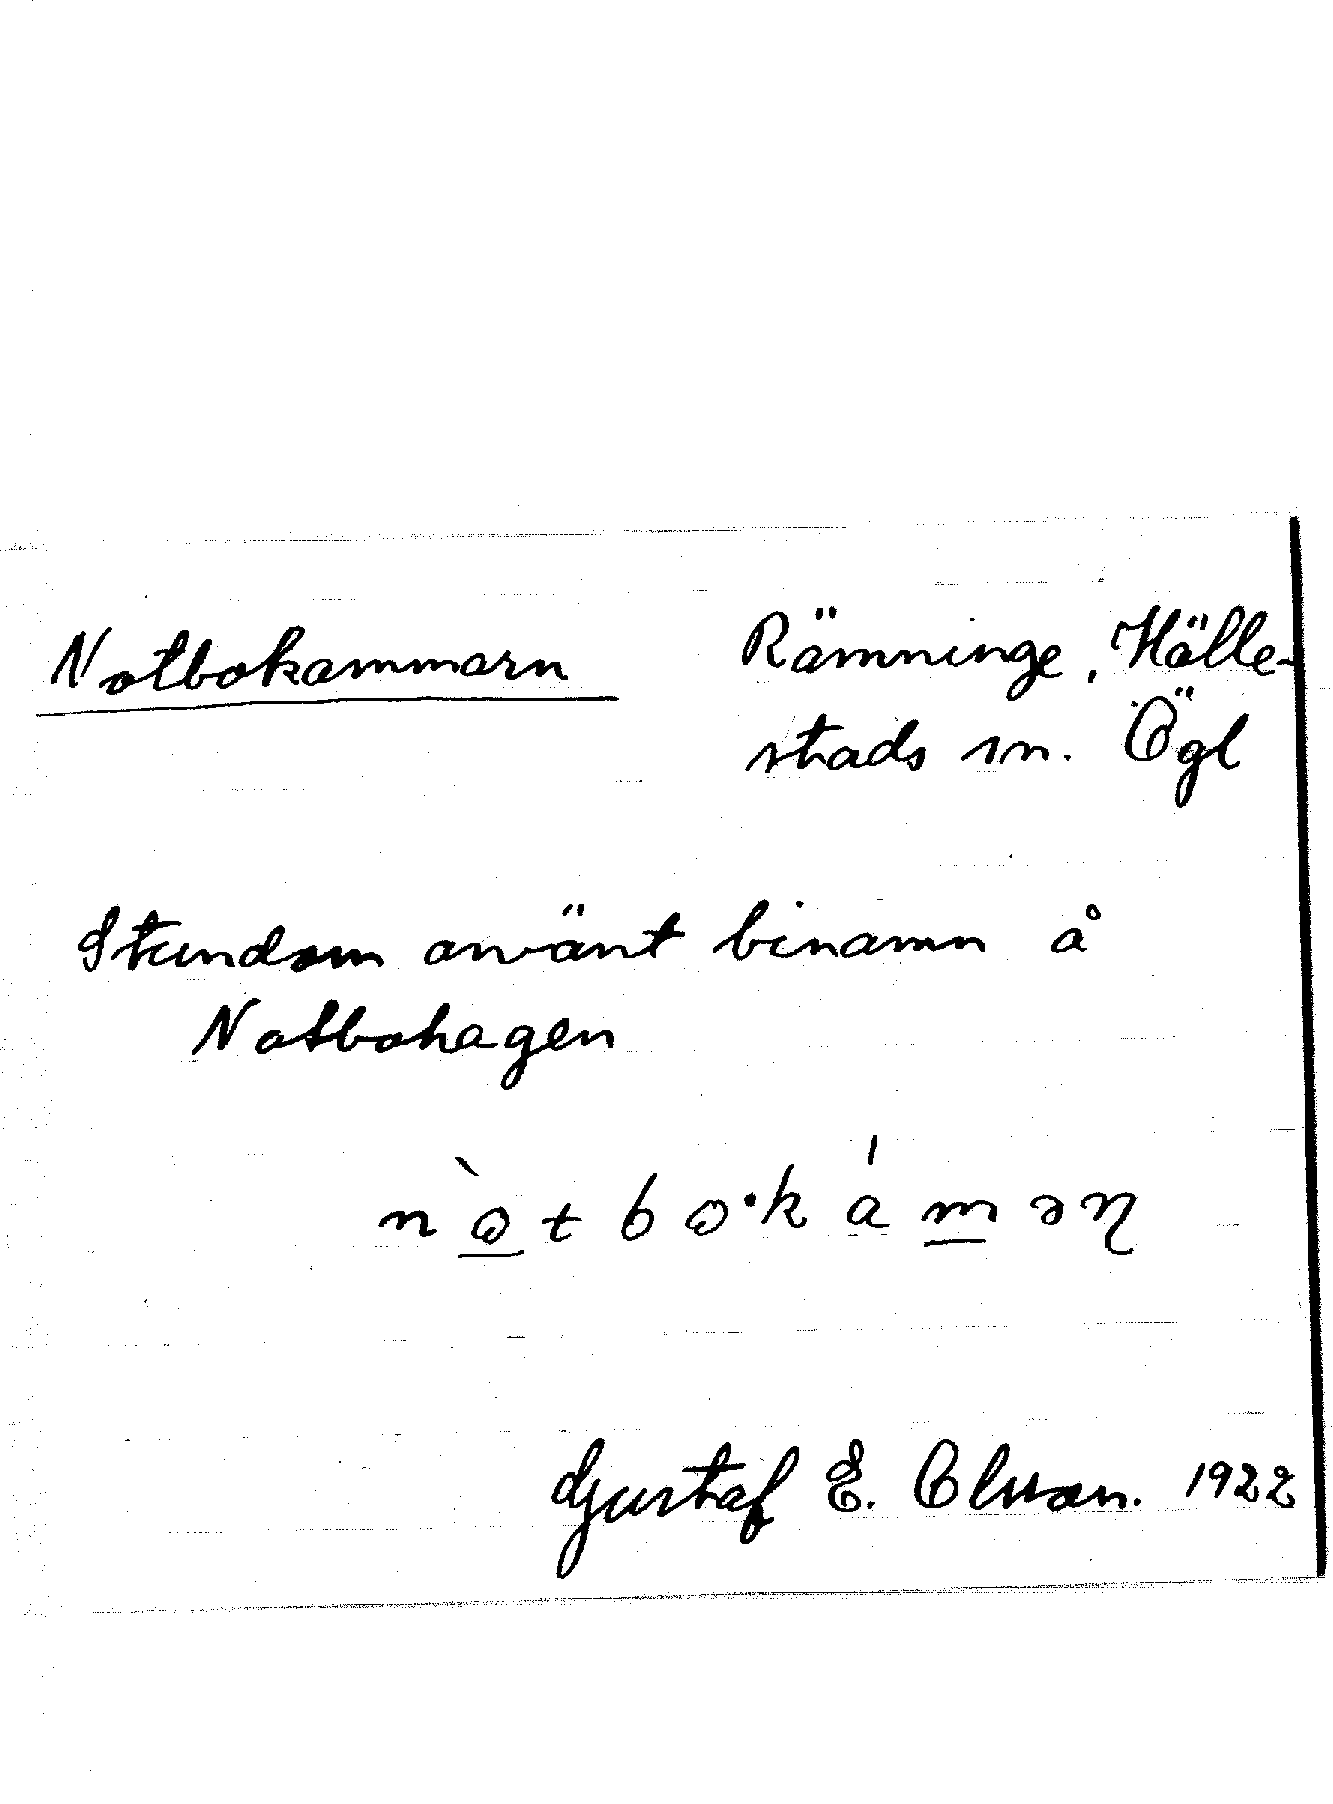 Notbokammarn
Rämninge, Hälle-
stads sn. Ögl
Stundom använt binamn å
Notbohagen
Gustaf E. Olsson. 1922